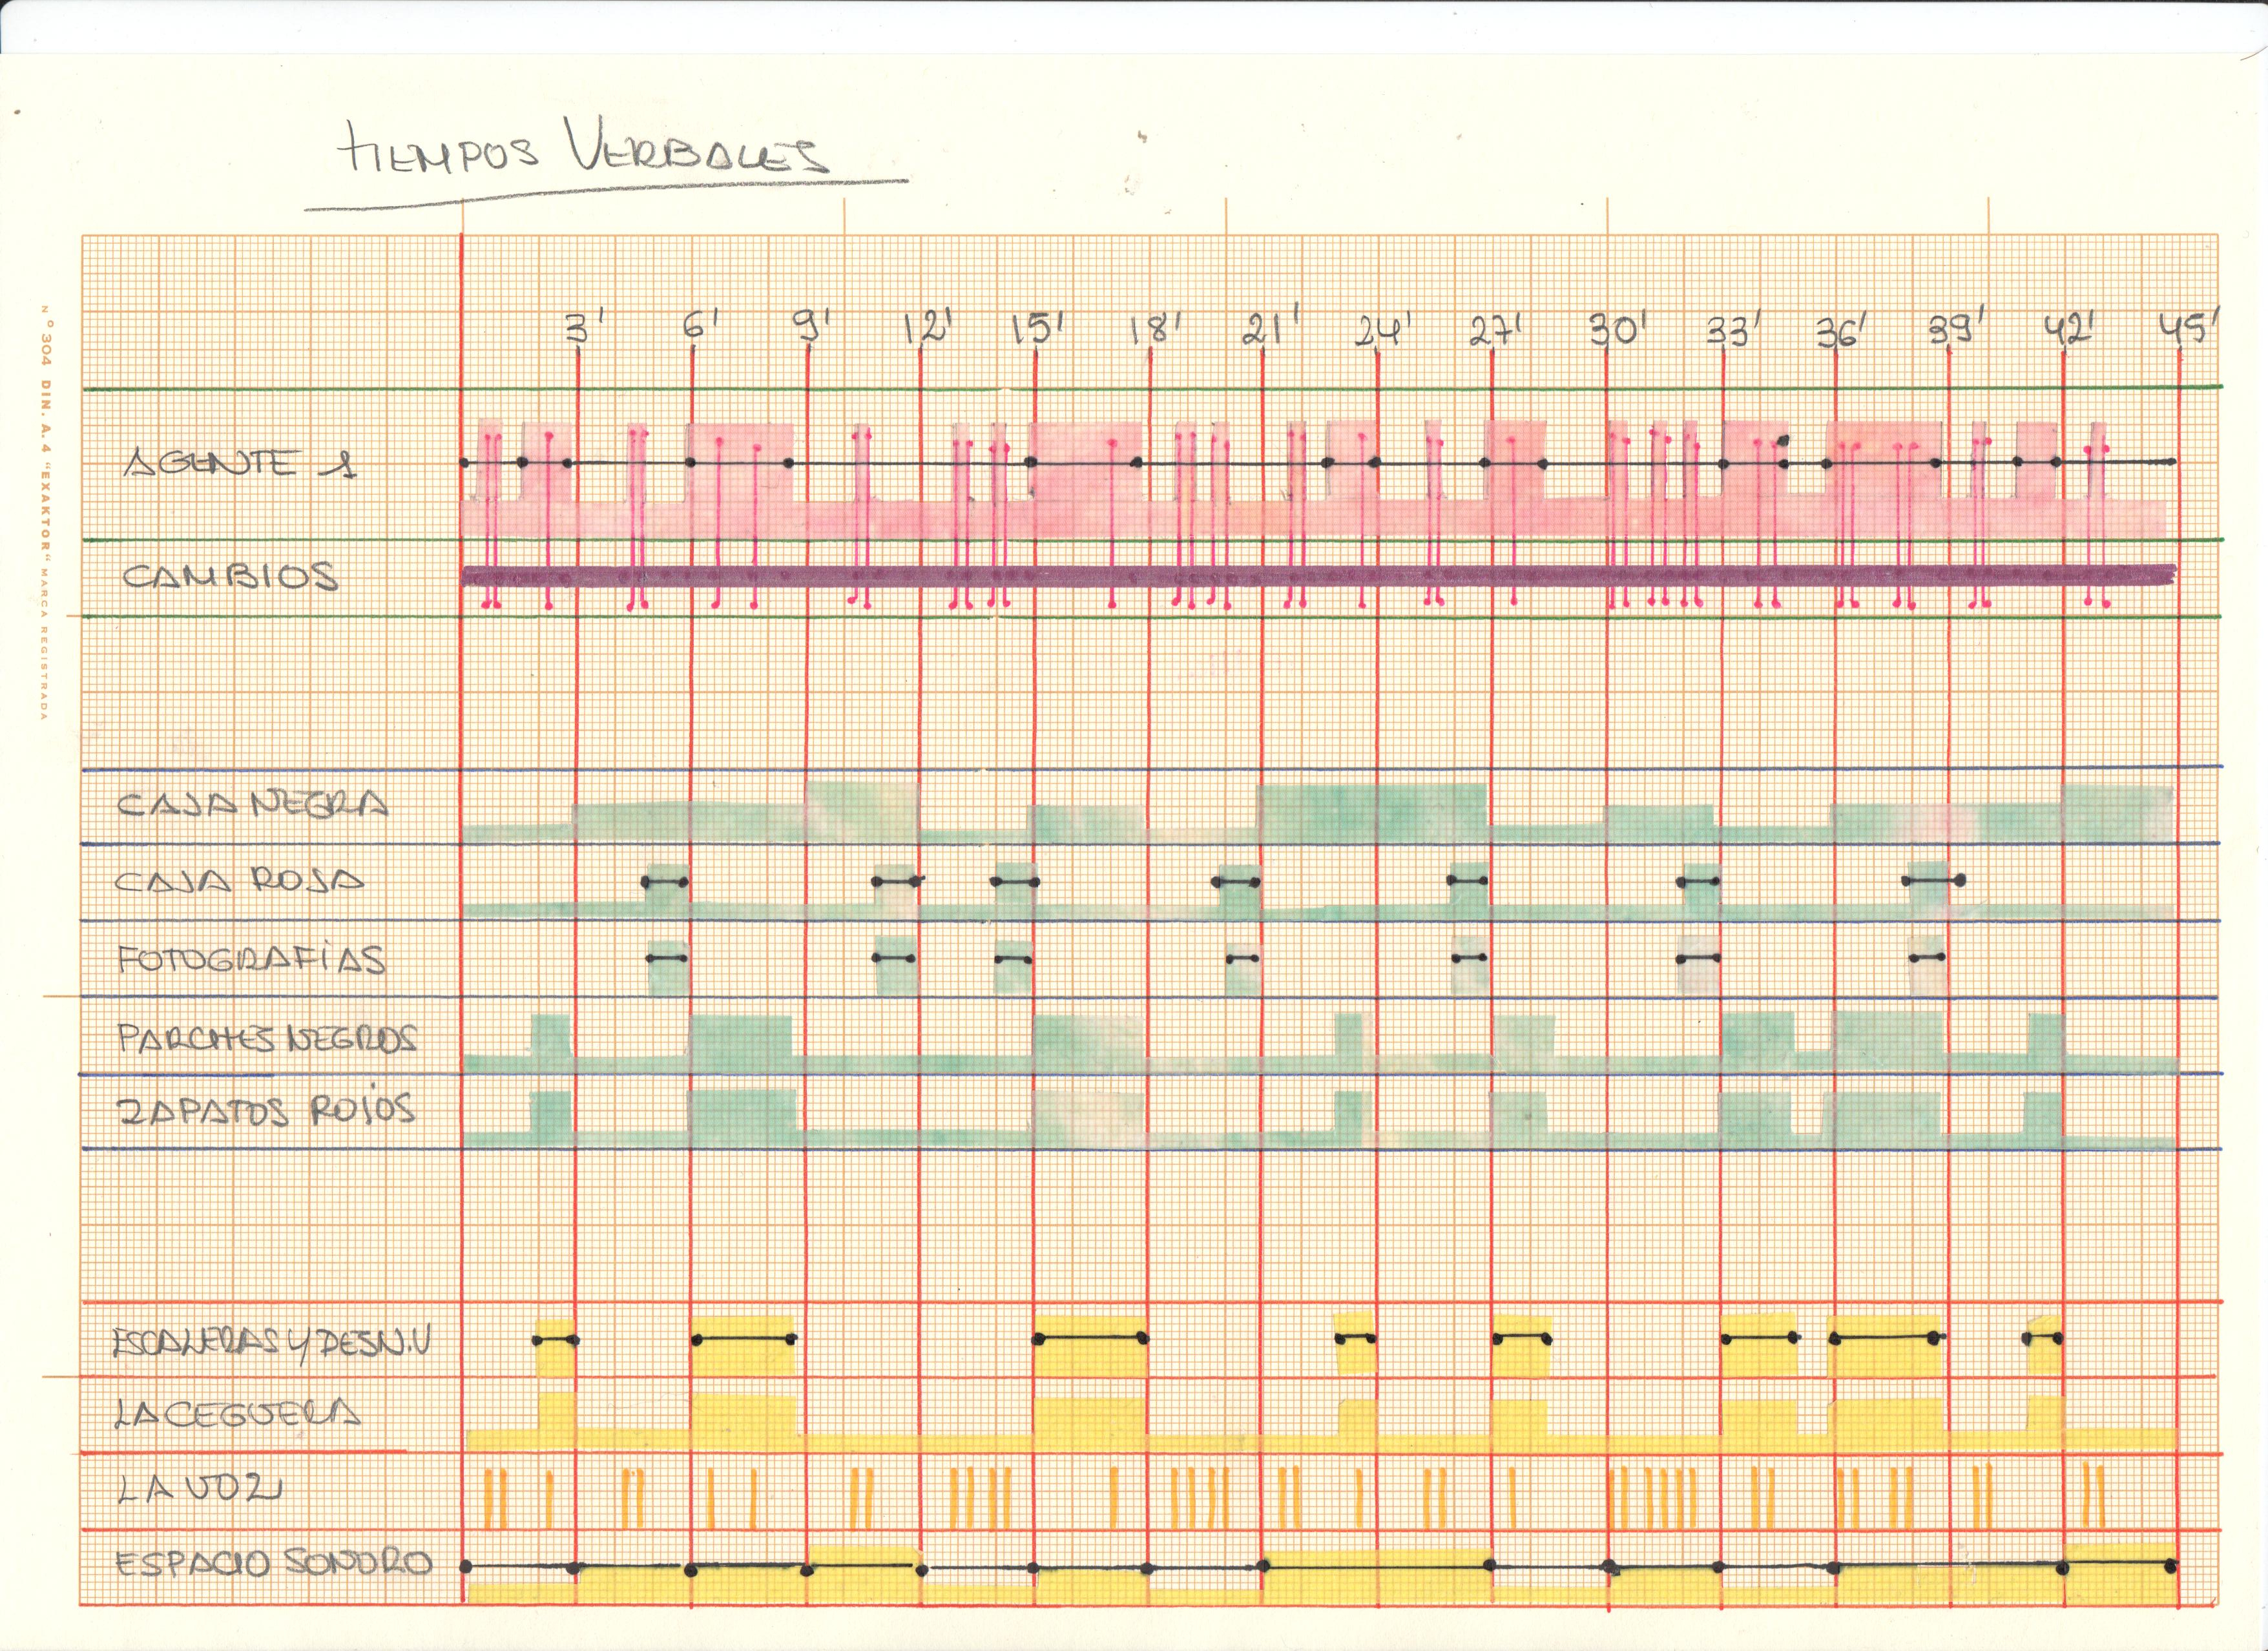 TIEMPOS VERBALES
3' 6' 9' 12' 15' 18' 21' 24' 27' 30' 33' 36' 39' 42' 45'
AGENTE 1
CAMBIOS
CAJA NEGRA
CAJA ROJA
FOTOGRAFÍAS
PARCHES NEGROS
ZAPATOS ROJOS
ESCALERAS Y DESN.V
LA CEGUERA
LA VOZ
ESPACIO SONORO
Nº 304 DIN. A. 4 "EXAKTOR" MARCA REGISTRADA